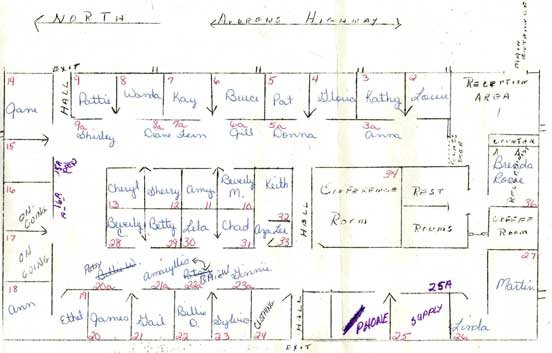 NORTH
ANDREWS HIGHWAY
MAIN ENTRANCE
EXIT
14
Jane
HALL
9
Pattie
8
Wanda
7
Kay
6
Bruce
5
Pat
4
Gloria
3
Kathy
2
Louise
RECEPTION AREA
1
9a
Shirley
8a
Diane
7a
Fern
6a
Jill
5a
Donna
3a
Anna
15
15A
16
ON-GOING
16A
Cheryl
13
Sherry
12
Amy
11
Beverly M.
10
Keith
32
CONFERENCE ROOM
34
REST ROOMS
COUNTER
Brenda
36
Beverly C.
28
Betty
29
Lela
30
Chad
31
33
HALL
COFFEE ROOM
17
ON GOING
27
Martin
18
Ann
20a
Amaryllis
21a
22a
23a
19
Ethel
James
20
Gail
21
Billie D.
22
Sylvia
23
CLOTHING
24
HALL
PHONE
25
25A
SUPPLY
Linda
26
EXIT